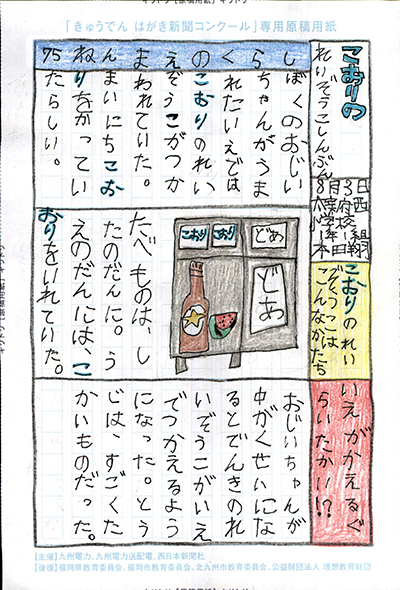 「きゅうでん はがき新聞コンクール」専用原稿用紙
こおりの
れいぞうこしんぶん
8月3日
75ねんまえのくらし
ぼくのおじい
ちゃんがうま
れたいえでは
こおりのれい
ぞうこがつか
われていた。
まいにちこお
りをかってい
たらしい。
こおりのれい
ぞうこは
こんなかたち
どあ
どあ
こおり
こおり
たべものは、し
たのだんに。う
えのだんには、こ
おりをいれていた。
いえがかえるぐ
らいたかい!?
おじいちゃんが
中がくせいにな
るとでんきのれ
いぞうこがいえ
でつかえるよう
になった。とう
じは、すごくた
かいものだった。
【主催】九州電力、九州電力送配電、西日本新聞社
【後援】福岡県教育委員会、福岡市教育委員会、北九州市教育委員会、公益財団法人 理想教育財団